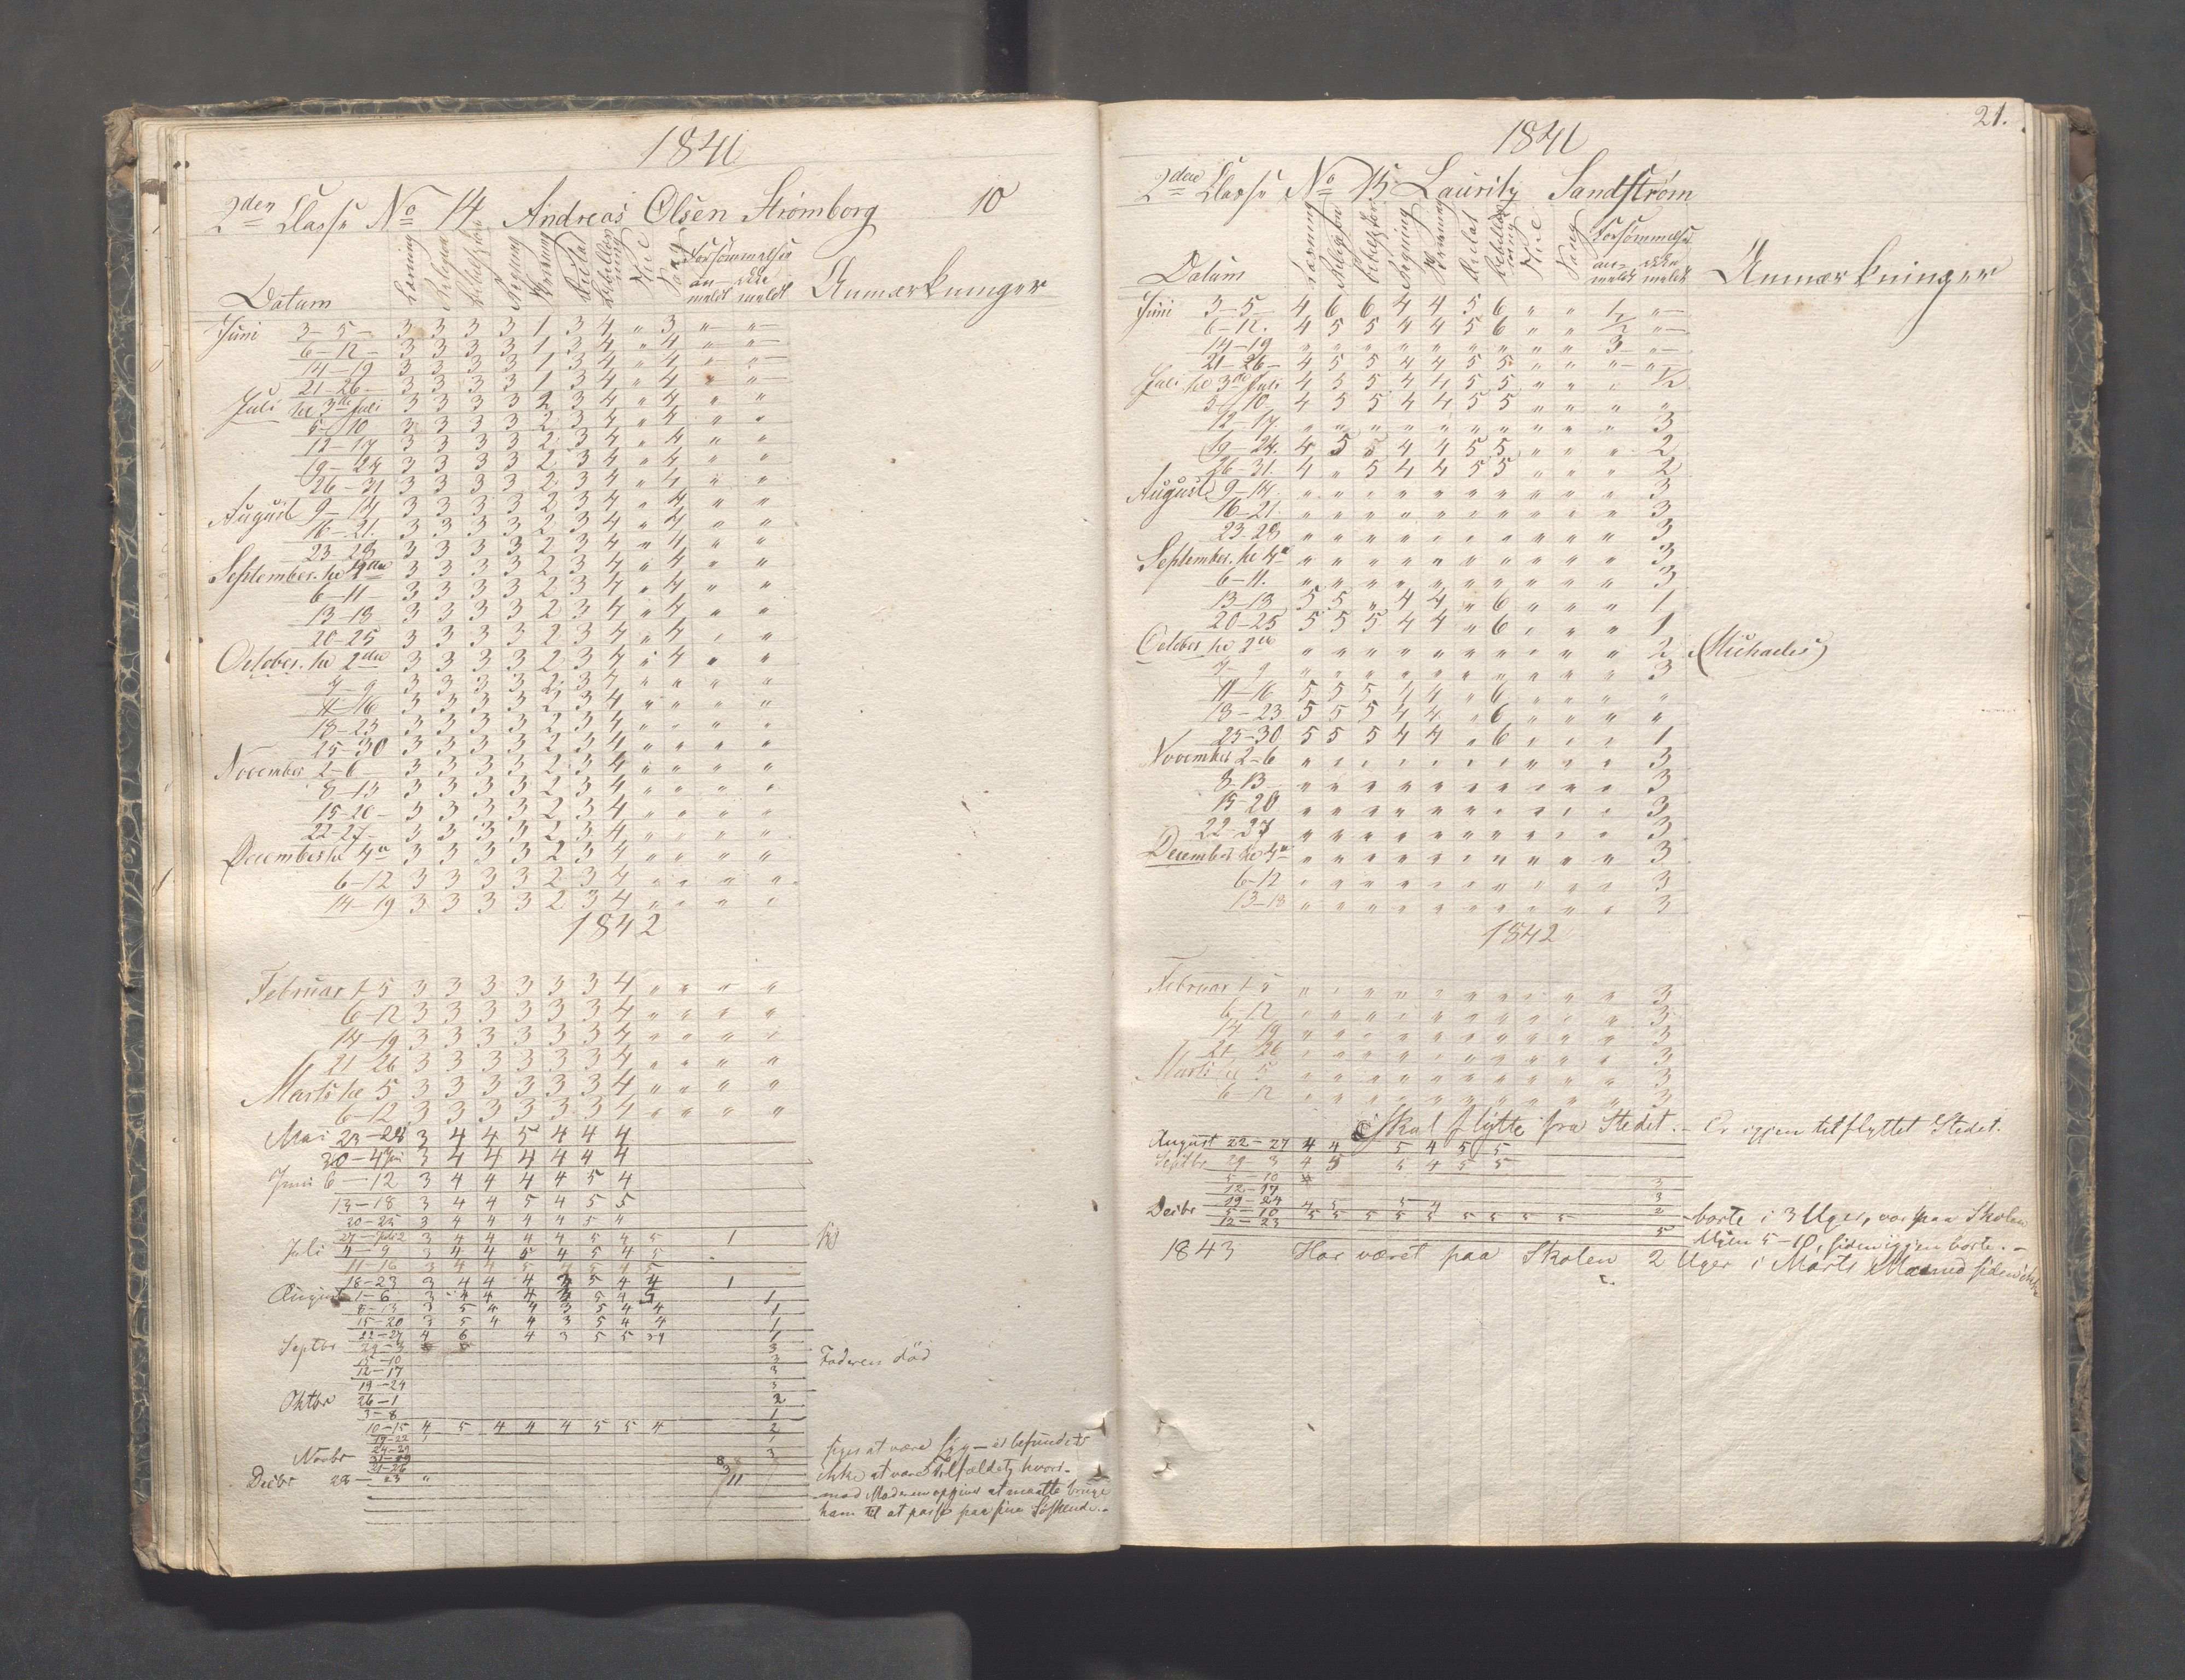 1841
2den Classe No 14. Andreas Olsen Strömborg 10
Datum Læsning Religion Skrivning Regning Sang Forsømmelser an- meldt ikke meldt Anmærkninger
Juni 3-5- 3 3 3 3 1 3 4 " 3 " "
6-12- 3 3 3 3 1 3 4 " 4 " "
14-19 3 3 3 3 1 3 4 " 4 " "
21-26- 3 3 3 3 1 3 4 " 4 " "
Juli 3die Juli 3 3 3 3 2 3 4 " 4 " "
5-10 3 3 3 3 2 3 4 " 4 " "
12-17 3 3 3 3 2 3 4 " 4 " "
19-24 3 3 3 3 2 3 4 " 4 " "
26-31 3 3 3 3 2 3 4 " 4 " "
August 9-14 3 3 3 3 2 3 4 " 4 " "
16-21. 3 3 3 3 2 3 4 " 4 " "
23-28 3 3 3 3 2 3 4 " 4 " "
September. 3 3 3 3 2 3 4 " 4 " "
6-11- 3 3 3 3 2 3 4 " 4 " "
13-18 3 3 3 3 2 3 4 " 4 " "
20-25 3 3 3 3 2 3 4 " 4 " "
October. 2den 3 3 3 3 2 3 4 " 4 " "
4-9 3 3 3 3 2 3 4 " " " "
11-16 3 3 3 3 2 3 4 " " " "
18-23 3 3 3 3 2 3 4 " " " "
25-30 3 3 3 3 2 3 4 " " " "
November 2-6- 3 3 3 3 2 3 4 " " " "
8-13 3 3 3 3 2 3 4 " " " "
15-20- 3 3 3 3 2 3 4 " " " "
22-27- 3 3 3 3 2 3 4 " " " "
December 4de 3 3 3 3 2 3 4 " " " "
6-12 3 3 3 3 2 3 4 " " " "
14-19 3 3 3 3 2 3 4 " " " "
1842
Februar 1-5 3 3 3 3 3 3 4 " " " "
6-12 3 3 3 3 3 3 4 " " " "
14-19 3 3 3 3 3 3 4 " " " "
21-26 3 3 3 3 3 3 4 " " " "
Marts 5 3 3 3 3 3 3 4 " " " "
6-12 3 3 3 3 3 3 4 " " " "
Mai 23-28 3 4 4 5 4 4 4
30-4 Juni 3 4 4 4 4 4 4
Juni 6-12 3 4 4 4 4 5 4
13-18 3 4 4 5 4 5 5
20-25 3 4 4 4 4 5 4
27-Juli 2 3 4 4 4 4 5 4 5 1
Juli 4-9 3 4 4 5 4 5 4 5
11-16 3 4 4 5 4 5 4 5
18-23 3 4 4 4 3 5 4 4 1
August 1-6 3 4 4 4 3 5 4 5 1
8-13 3 5 4 4 3 5 4 4 1
15-20 3 5 4 4 3 5 4 4 1
22-27 4 6 4 3 5 5 1
Septbr 29-3 3
5-10 3 Faderen död
12-17 3
19-24 3
Oktbr 26-1 2
3-8 1
10-15 4 5 4 4 4 5 5 4 2
17-22 1
24-29 3
Novbr
21-26
Decbr 23 " 11
siges at være syg - er befundet
ikke at være Tilfældet, hvori-
mod Moderen opgives at maatte bruge
ham til at passe paa sine Söskende.-
21.
1841
2den Classe No 15. Lauritz Sandström
Datum Læsning Religion Regning Sang Forsømmelser an- meldt ikke meldt Anmærkninger
Juni 3-5- 4 6 6 4 4 5 6 " " 1/2 "
6-12. 4 5 5 4 4 5 6 " " 1/2 "
14-19 " " " " " " " " " 3 "
21-26- 4 5 5 4 4 5 5 " " " "
Juli 3die Juli 4 5 5 4 4 5 5 " " " 1/2
5-10 4 5 5 4 4 5 5 " " " "
12-17. " " " " " " " " " " 3
19-24. 4 5 5 4 4 5 5 " " " 2
26-31. 4 " 5 4 4 5 5 " " " 2
August 9-14. " " " " " " " " " " 3
16-21. " " " " " " " " " " 3
23-28 " " " " " " " " " " 3
September. 4de " " " " " " " " " " 3
6-11. " " " " " " " " " " 3
13-18 5 5 " 4 4 " 6 " " " 1
20-25 5 5 5 4 4 " 6 " " " 1
October 2den " " " " " " " " " " 2 (Michaelis)
4-9 " " " " " " " " " " 3
11-16 5 5 5 4 4 " 6 " " " "
18-23 5 5 5 4 4 " 6 " " " "
25-30 5 5 5 4 4 " 6 " " " 1
November 2-6 " " " " " " " " " " 3
8-13 " " " " " " " " " " 3
15-20 " " " " " " " " " " 3
22-27 " " " " " " " " " " 3
December 4de " " " " " " " " " " 3
6-12 " " " " " " " " " " 3
13-18 " " " " " " " " " " 3
1842
Februar 1-5 " " " " " " " " " " 3
6-12 " " " " " " " " " " 3
14-19 " " " " " " " " " " 3
21-26 " " " " " " " " " " 3
Marts 5 " " " " " " " " " " 3
6-12 " " " " " " " " " " 3
Skal flytte fra Stedet. - Er igjen tilflyttet Stedet.
August 22-27 4 4 5 4 5 5
Septbr 29-3 4 5 5 4 5 5
5-10 3
12-17 3
19-24 4 5 5 4 2
Decbr 5-10 5 5 5 5 5 5 5 5 5
12-23 5
borte i 3 Uger, var paa Skolen
Ugen 5-10, siden igjen borte. -
1843 Har været paa Skolen 2 Uger i Marts Maaned siden ikke